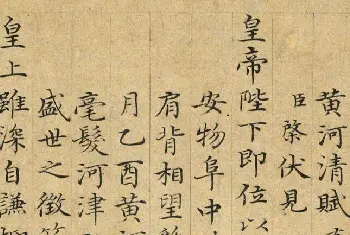 黃河清賦
臣棨伏見
皇帝陛下即位以
安物阜中
肩背相望
月乙酉黃河
毫髮河津
盛世之徵
皇上雖深自謙